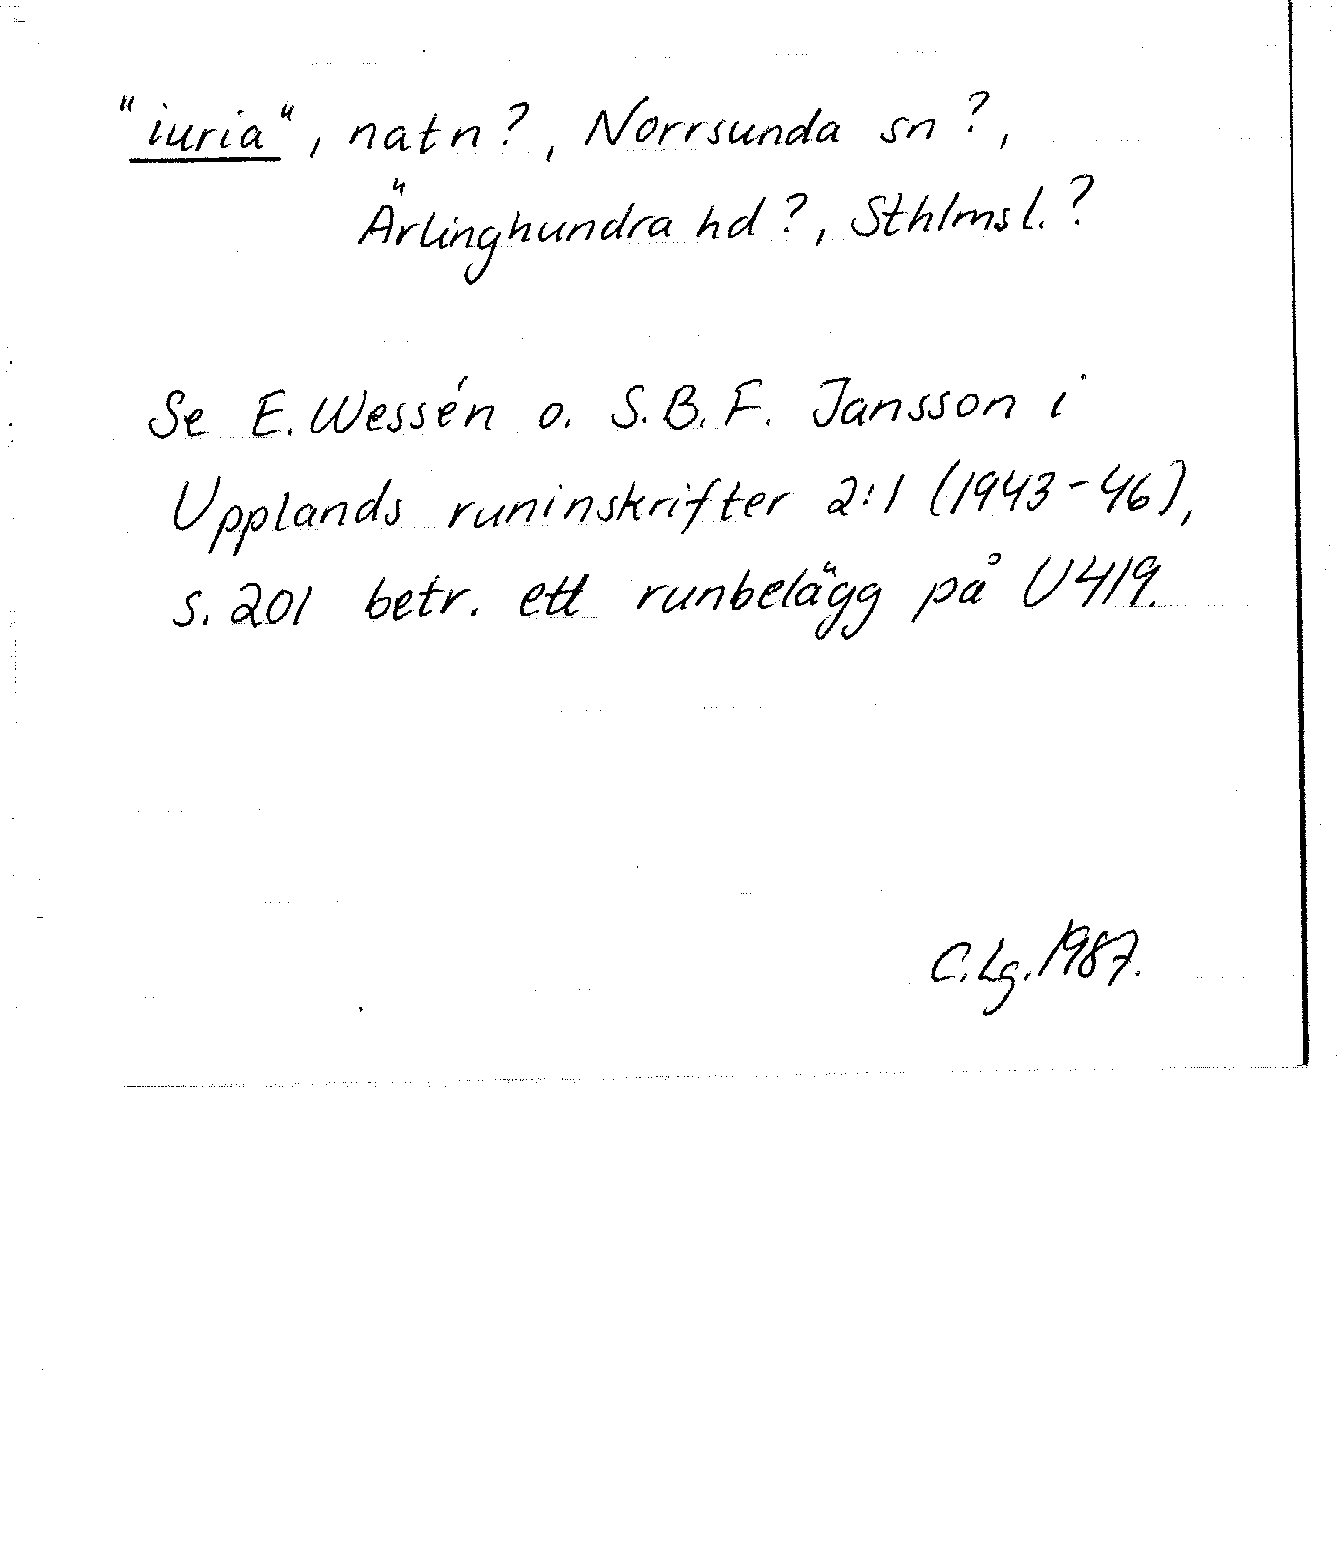 "iuria", natn?, Norrsunda sn?,
Ärlinghundra hd?, Sthlms l.?
Se E. Wessén o. S.B.F. Jansson i
Upplands runinskrifter 2:1 (1943-46),
s. 201 betr. ett runbelägg på U419.
C.Lg. 1987.